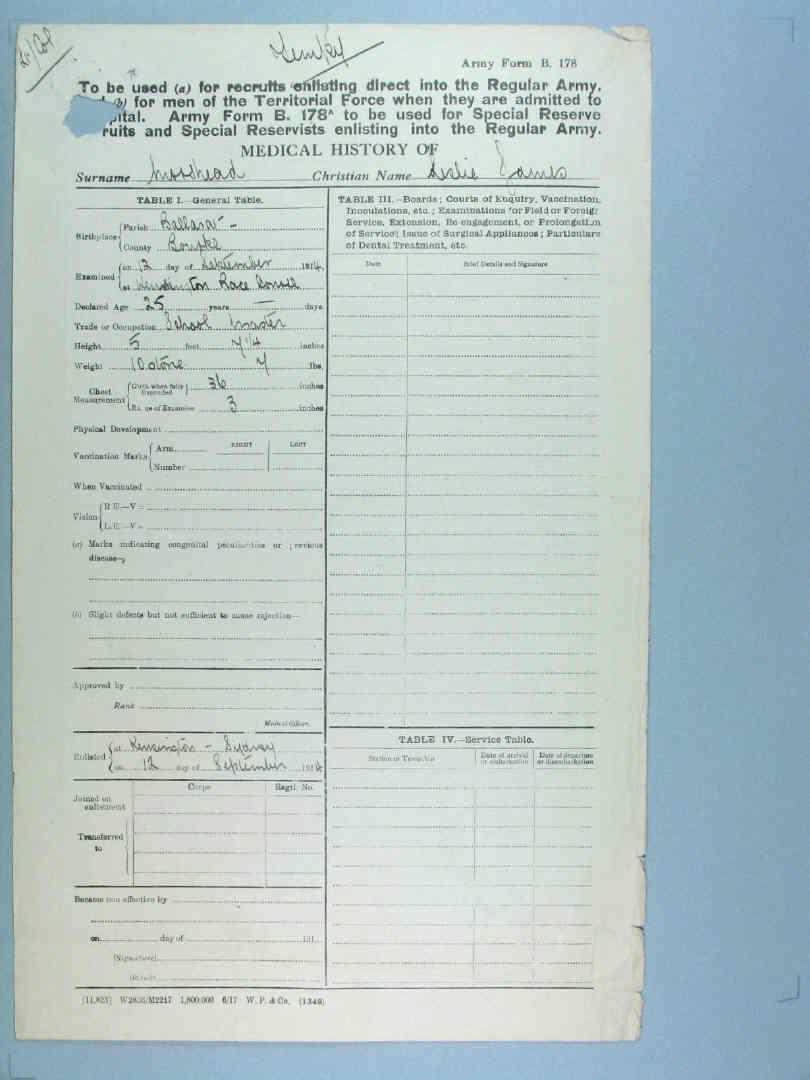 Lt/Col
Army Form B. 178
To be used (a) for recruits enlisting direct into the Regular Army,
(b) for men of the Territorial Force when they are admitted to
pital. Army Form B. 178ᴬ to be used for Special Reserve
ruits and Special Reservists enlisting into the Regular Army.
MEDICAL HISTORY OF
Surname Morshead Christian Name Leslie James
TABLE I.—General Table.
Birthplace Parish Ballarat
County
Examined on 12 day of September 1914,
at Kensington Race Course
Declared Age 25 years — days.
Trade or Occupation School Master
Height 5 feet 7 1/4 inches
Weight 10 stone 7 lbs.
Chest Measurement Girth when fully Expanded 36 inches
Range of Expansion 3 inches
Physical Development
Vaccination Marks Arm RIGHT LEFT
Number
When Vaccinated
Vision R.E.—V =
L.E.—V =
(a) Marks indicating congenital peculiarities or previous
disease—
(b) Slight defects but not sufficient to cause rejection—
Approved by
Rank
Medical Officer.
Enlisted at Kensington - Sydney
on 12 day of September 1914
Corps Regtl. No.
Joined on
enlistment
Transferred
to
Became non-effective by
on day of 191
(Signature)
(Rank)
TABLE III.—Boards; Courts of Enquiry, Vaccination,
Inoculations, etc.; Examinations for Field or Foreign
Service, Extension, Re-engagement, or Prolongation
of Service; Issue of Surgical Appliances; Particulars
of Dental Treatment, etc.
Date Brief Details and Signature
TABLE IV.—Service Table.
Station or Troopship Date of arrival or embarkation Date of departure or disembarkation
(11,823) W2835/M2217 1,800,000 6/17 W. P. & Co. (1349)